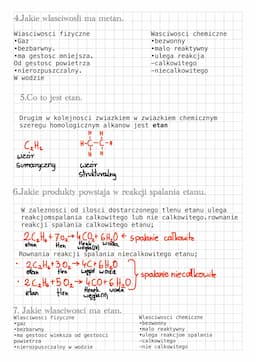 4.Jakie wlasciwosłi ma metan.
Wlasciwosci fizyczne
•Gaz
•bezbarwny.
•ma gestosc mniejsza.
Od gestosc powietrza
•nierozpuszczalny.
W wodzie
Wlasciwosci chemiczne
•bezwonny
•malo reaktywny
•ulega reakcja
-calkowitego
-niecalkowitego
5.Co to jest etan.
Drugim w kolejnosci zwiazkiem w zwiazkiem chemicznym
szeregu homologicznym alkanow jest etan
C₂H₆
wzór
sumaryczny
H H
H-C-C-H
H H
wzór
strukturalny
6.Jakie produkty powstaja w reakcji spalania etanu.
W zalezności od ilosci dostarczonego tlenu etanu ulega
reakcjomspalania calkowitego lub nie calkowitego.rownanie
reakcji spalania calkowitego etanu;
2C₂H₆+7O₂→4CO₂+6H₂O ← spalanie całkowite
etan tlen tlenek węgla(IV) woda
Rownania reakcji spalania niecalkowitego etanu;
• 2C₂H₆+3O₂→4C+6H₂O
etan tlen węgiel woda
spalanie niecałkowite
• 2C₂H₆+5O₂→4CO+6H₂O
etan tlen tlenek węgla(II) woda
7. Jakie właściwosci ma etan.
Wlasciwosci fizyczne
•gaz
•bezbarwny.
•ma gestosc wieksza od gestosci
powietrza
•nierozpuszczalny w wodzie
Wlasciwosci chemiczne
•bezwonny
•malo reaktywny
•ulega reakcjom spalania
-calkowitego
-nie calkowitego